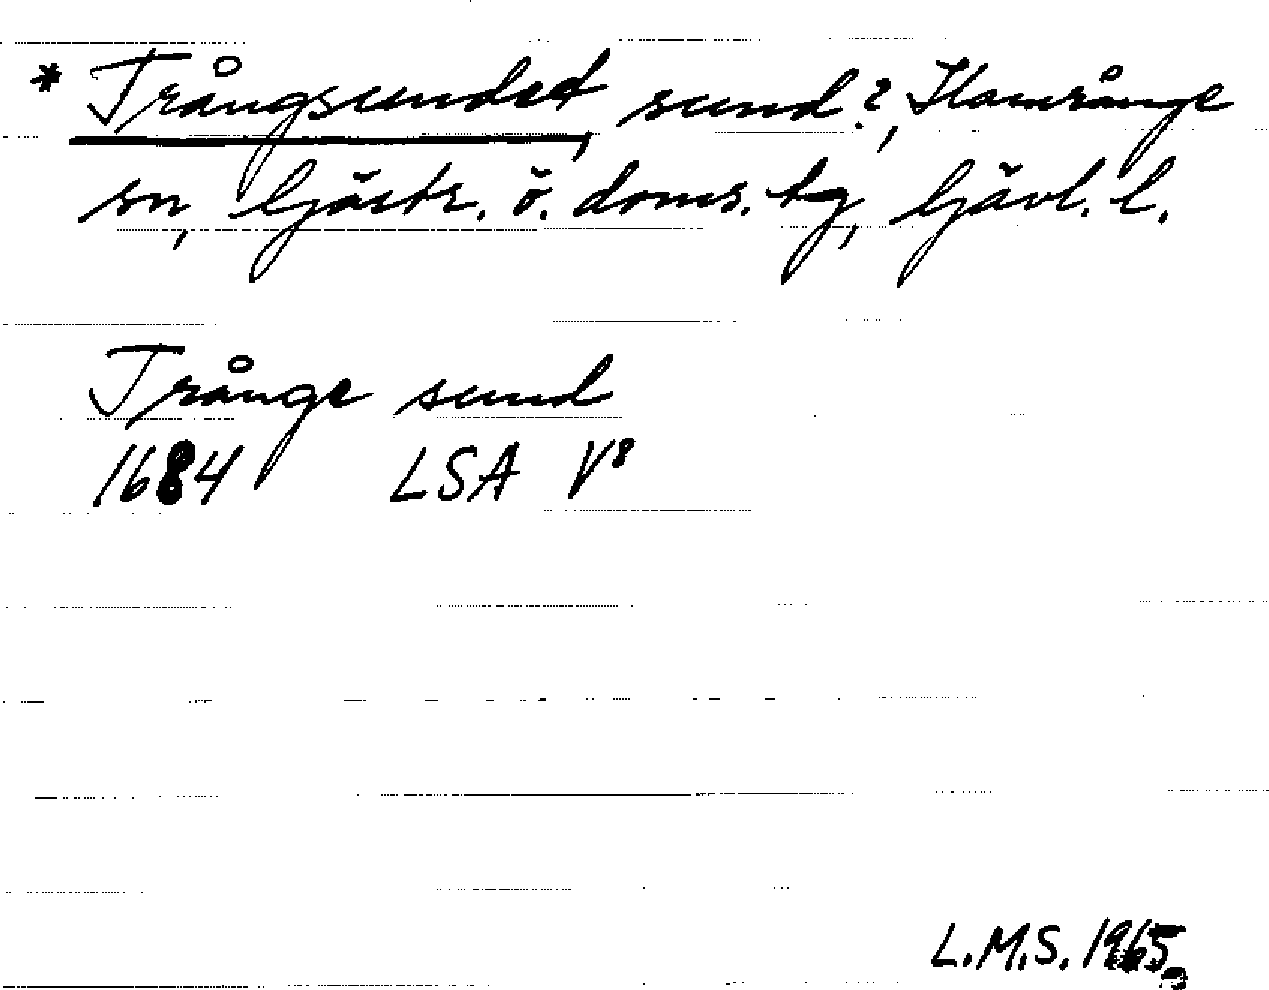 * Trångsundet, sund?, Hamrånge
sn, Gästr. ö. doms. tg, Gävl. l.
Trånge sund
1684 LSA V8
L.M.S. 1965